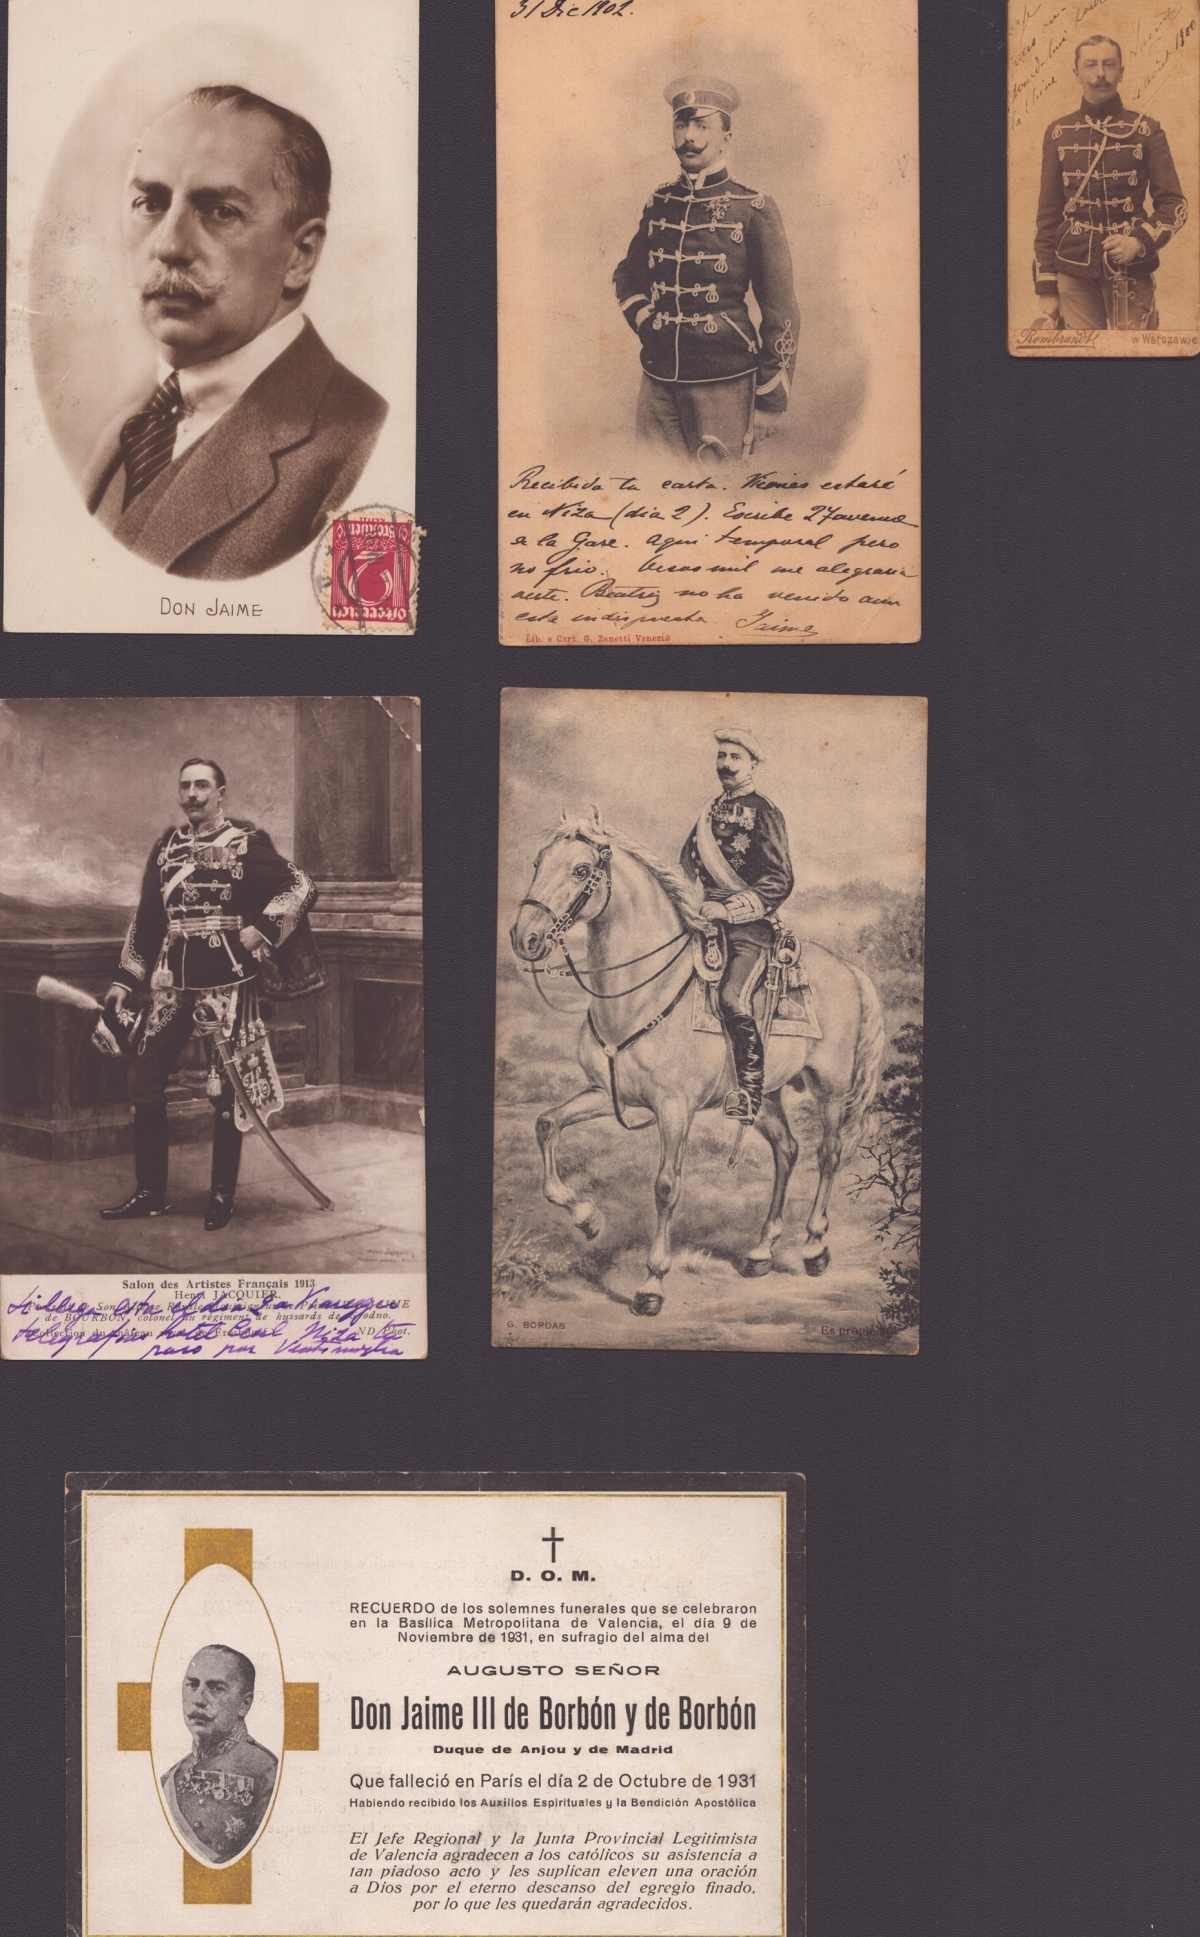 DON JAIME
2
Oesterreich
31 Dic 1902.
Recibida tu carta. Viernes estaré
en Niza (dia 2). Escribe 27 avenue
de la Gare. Aqui temporal pero
no frio. Besos mil me alegraria
verte. Beatriz no ha venido aun
esta indispuesta. Jaime
Lib. e Cart. G. Zanetti Venezia
avril 1900
la Chine
Rembrandt w Warszawie
Salon des Artistes Français 1913
Henri JACQUIER.
Son
de BOURBON, colonel au régiment de hussards de Grodno.
ND Phot.
Si llega esta el dia 2 a Viareggio
telegrafia hotel Niza tu
paso por Ventimiglia
G. BORDAS
Es propiedad
D. O. M.
RECUERDO de los solemnes funerales que se celebraron
en la Basílica Metropolitana de Valencia, el día 9 de
Noviembre de 1931, en sufragio del alma del
AUGUSTO SEÑOR
Don Jaime III de Borbón y de Borbón
Duque de Anjou y de Madrid
Que falleció en París el día 2 de Octubre de 1931
Habiendo recibido los Auxilios Espirituales y la Bendición Apostólica
El Jefe Regional y la Junta Provincial Legitimista
de Valencia agradecen a los católicos su asistencia a
tan piadoso acto y les suplican eleven una oración
a Dios por el eterno descanso del egregio finado,
por lo que les quedarán agradecidos.